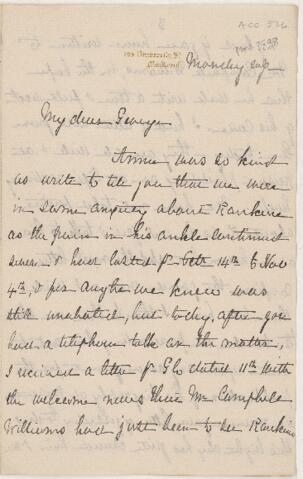 ACC 526
Monday evg
My dear George
Annie was so kind
as write to tell you that we were
in some anxiety about Rankine
as the pain in his ankle continued
severe & had lasted fr Octr 14th to Nov
4th, & for aught we knew was
still unabated, but today, after you
had a telephone talk on the matter,
I received a letter fr dated 11th with
the welcome news there Mr Campbell
Williams had just been to see Rankine